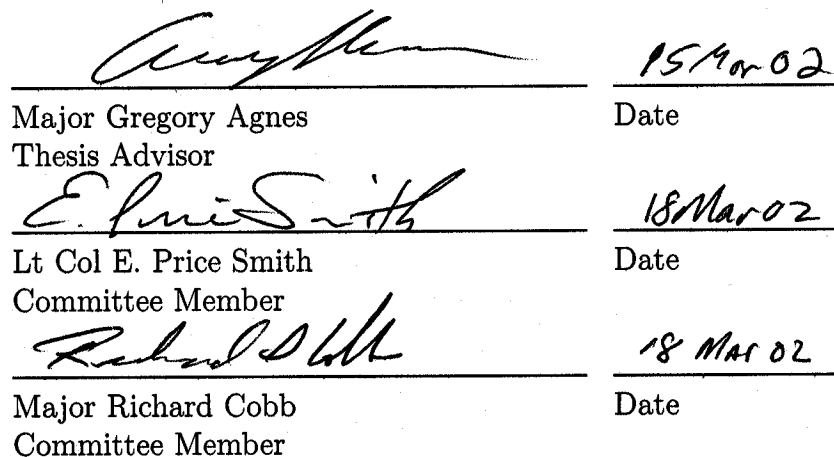 15 Mar 02
Major Gregory Agnes Date
Thesis Advisor
E. Price Smith 18 Mar 02
Lt Col E. Price Smith Date
Committee Member
Richard Cobb 18 Mar 02
Major Richard Cobb Date
Committee Member